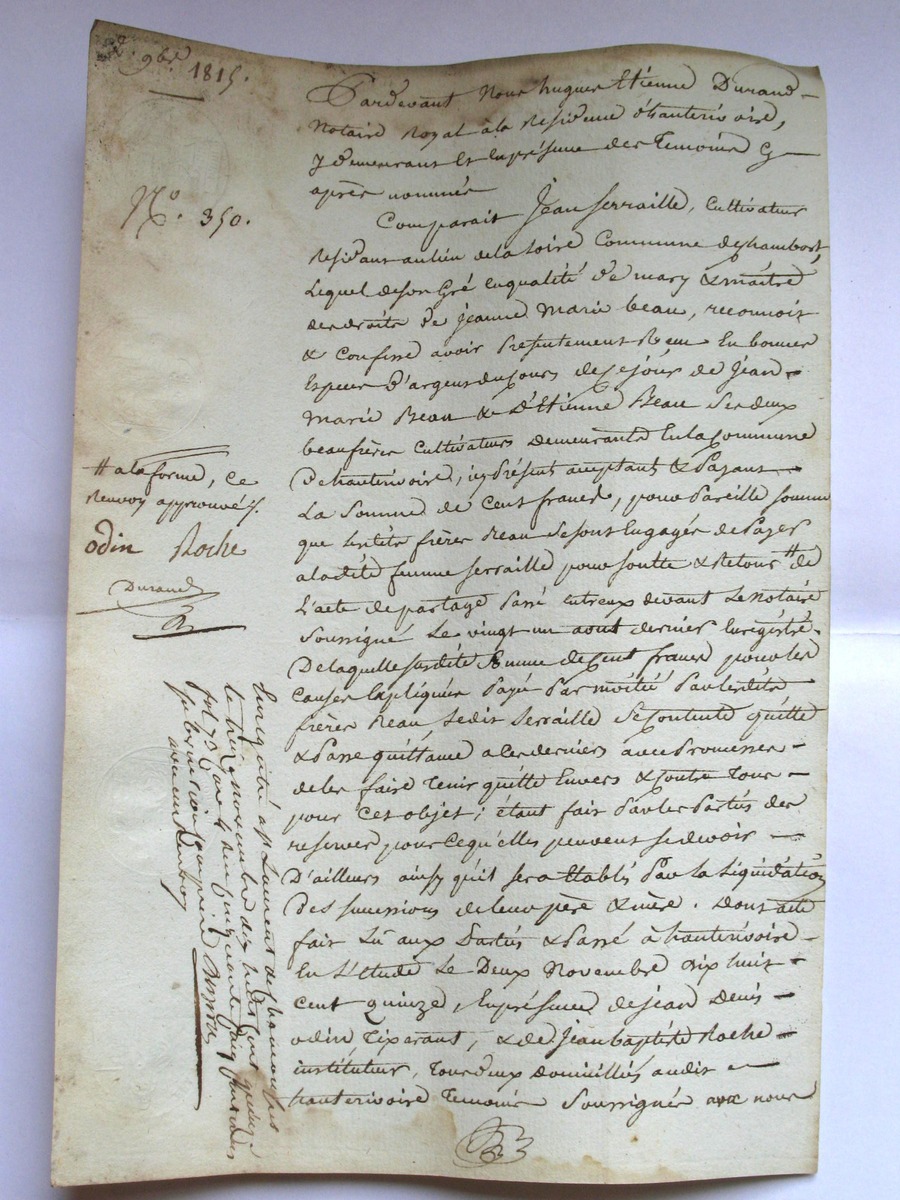 2 9bre 1815.
N°. 350.
Pardevant Nous hugues Etienne Durand
Notaire Royal à la Residence d'hauterivoire,
y demeurant Et En présence des Temoins Cy
après nommés
Comparait Jean Serraille, Cultivateur
Residant au lieu de la Loire Commune de chambost,
Lequel de son Gré en qualité de mary & maitre
des droits de jeanne Marie beau, reconnoit
& Confesse avoir Presentement Recu En bonnes
Especes d'argent du jours de Jean
Marie Beau & d'Etienne Beau Ses deux
beaufrères Cultivateurs Demeurants En la Commune
d'hauterivoire, icy Présent acceptant & Payant
La Somme de Cent francs, pour Pareille Somme
que lesdits frères Beau Se sont Engagés de Payer
a ladite femme Serraille pour Soulte & Retour # de
L'acte de partage Passé Entreux devant Le Notaire
Soussigné Le vingt un août dernier Enregistré.
De laquelle susdite Somme de Cent francs pour les
Causes Expliquées Payé Par moitié Par lesdits
frères Beau Ledit Serraille Se Contente quitte
& Passe quittance a Ces derniers avec Promesse
de les faire Tenir quitte Envers & Contre Tous
pour Cet objet; étant fait Par les Partis des
reserves pour Ce qu'elles peuvent Se devoir
D'ailleurs ainsy qu'il Sera Etablis Par la Liquidation
Des Successions de leur père & mère. Dont acte
fait Lû aux Partis & Passé à hauterivoire
En L'étude Le Deux Novembre dix huit
Cent quinze, En présence de jean Denis
odin Tixerant, & de Jean baptiste Roche
instituteur, Tous deux Domiciliés audit
hauterivoire Temoins Soussignés avec nous
# a la forme, Ce
Renvoy approuvé
odin Roche
Durand
Enregistré a St Laurent de chamousset
le trois novembre dix huit cent quinze